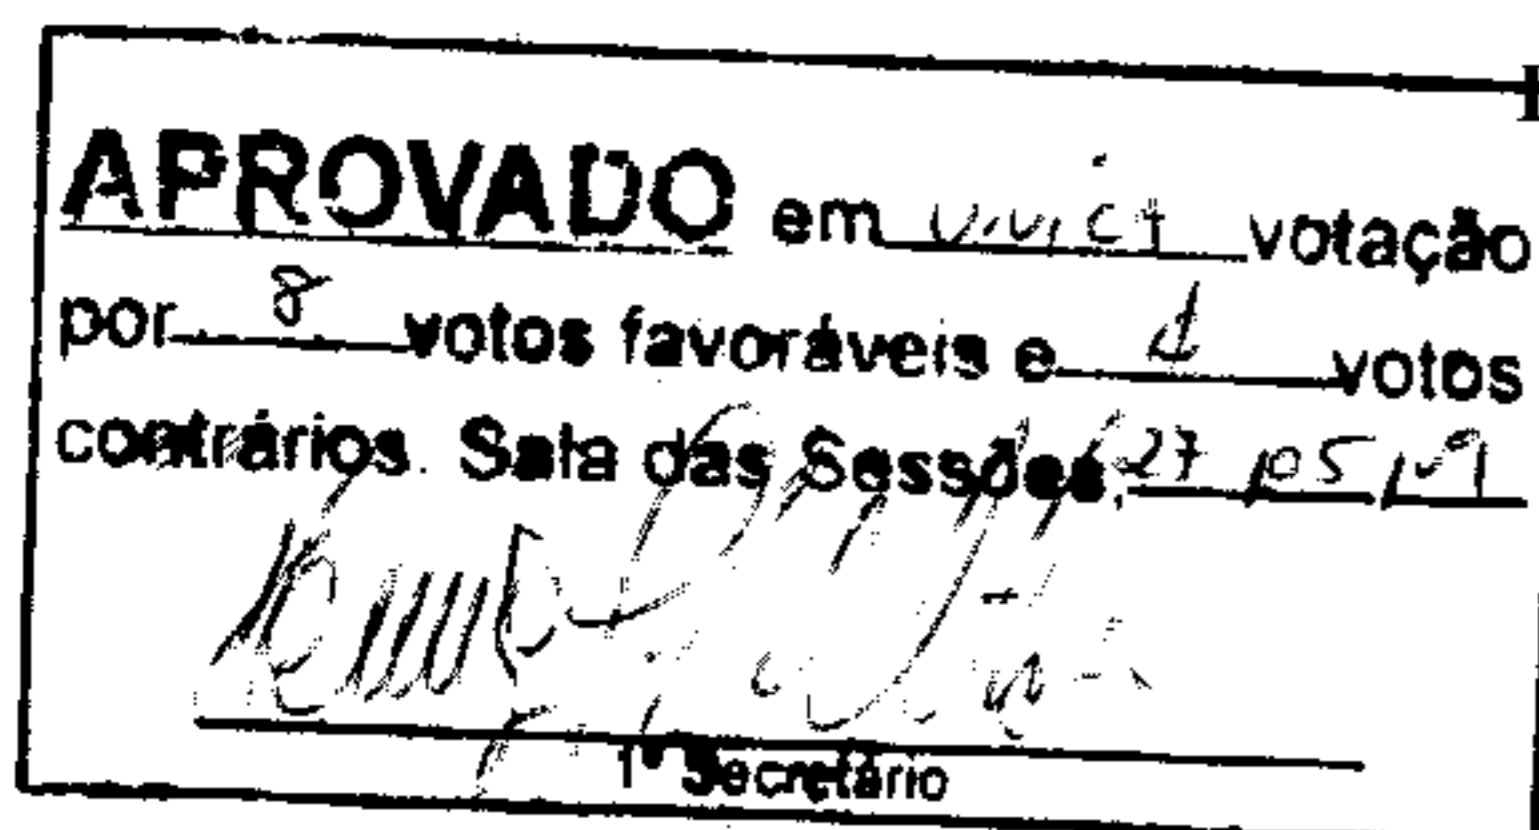 APROVADO em única votação
por 8 votos favoráveis e 1 votos
contrários. Sala das Sessões, 27/05/09
1º Secretário